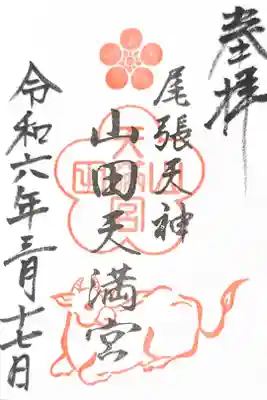 奉拝
尾張天神
山田天満宮
令和六年三月十七日